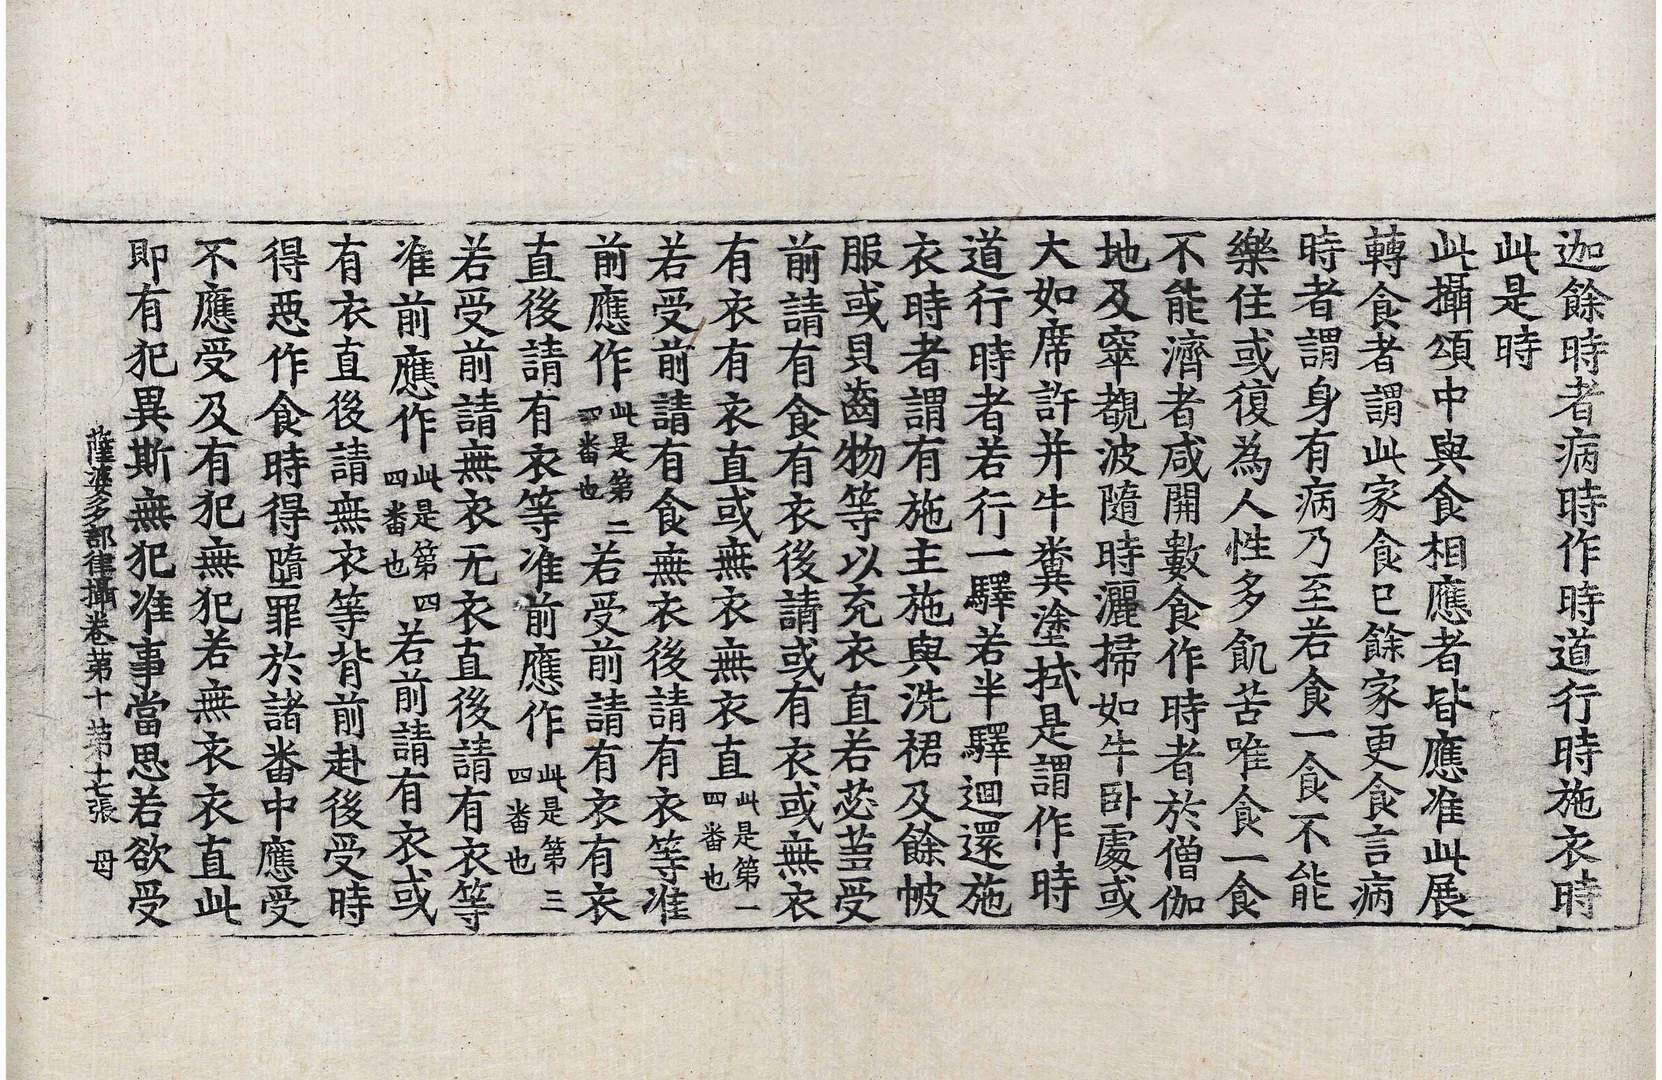 迦餘時者病時作時道行時施衣時
此是時
此攝頌中與食相應者皆應准此展
轉食者謂此家食已餘家更食言病
時者謂身有病乃至若食一食不能
樂住或復為人性多飢苦唯食一食
不能濟者咸開數食作時者於僧伽
地及窣覩波隨時灑掃如牛卧處或
大如席許并牛糞塗拭是謂作時
道行時者若行一驛若半驛迴還施
衣時者謂有施主施與洗裙及餘帔
服或貝齒物等以充衣直若苾芻受
前請有食有衣後請或有衣或無衣
有衣有衣直或無衣無衣直此是第一四番也
若受前請有食無衣後請有衣等准
前應作此是第二四番也若受前請有衣有衣
直後請有衣等准前應作此是第三四番也
若受前請無衣无衣直後請有衣等
准前應作此是第四四番也若前請有衣或
有衣直後請無衣等背前赴後受時
得惡作食時得墮罪於諸番中應受
不應受及有犯無犯若無衣衣直此
即有犯異斯無犯准事當思若欲受
薩婆多部律攝卷第十 第十七張 母